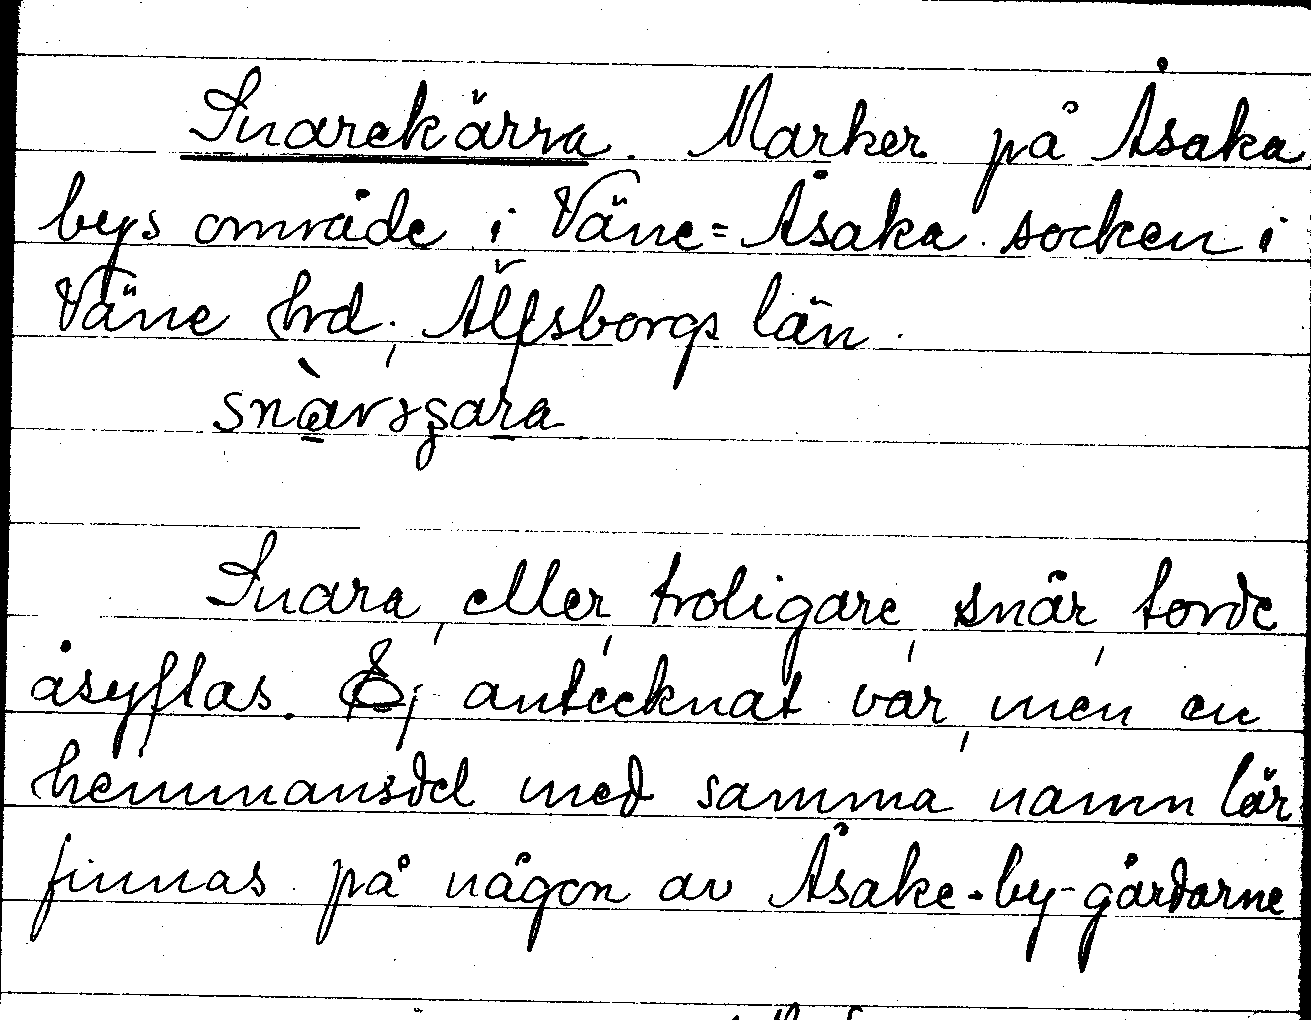 Snarekärra. Marker på Åsaka
bys område i Väne=Åsaka socken i
Väne hrd, Älfsborgs län.
snàrəʂara
Snara, eller, troligare, snår, torde
åsyftas. Ej antecknat var, men en
hemmansdel med samma namn lär
finnas på någon av Åsake-by-gårdarne